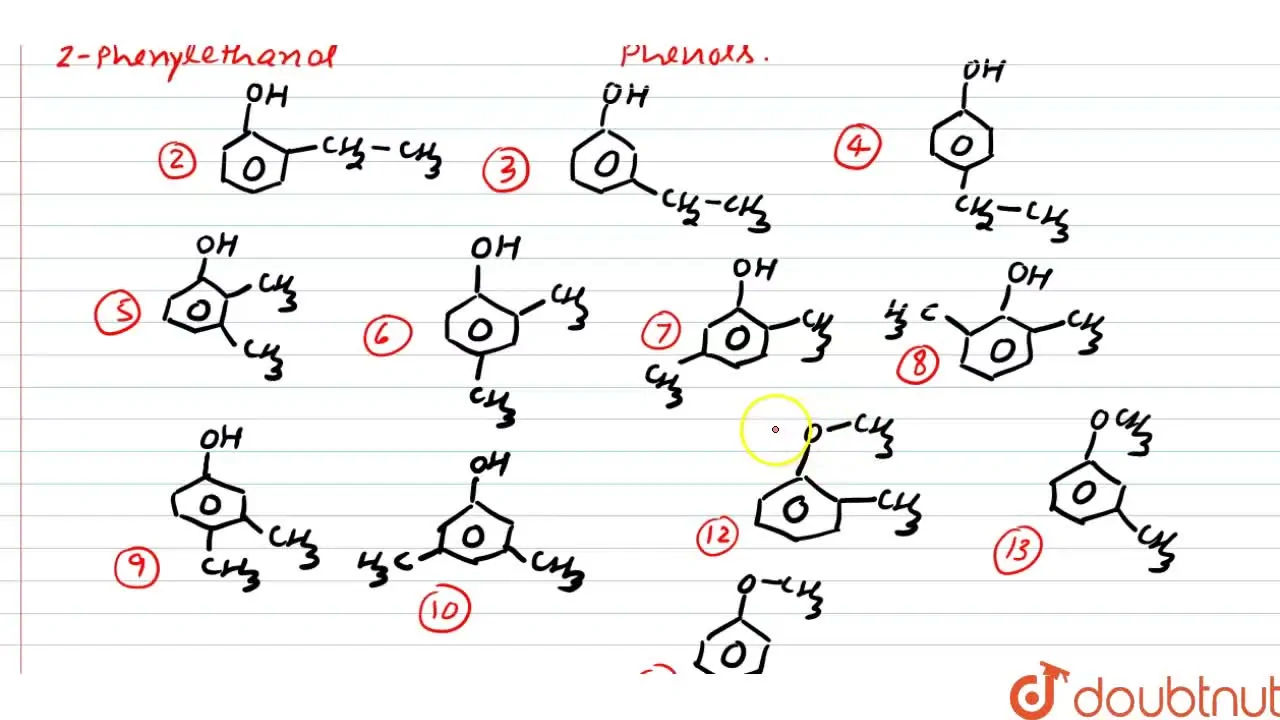 2-Phenylethanol
Phenols.
OH
CH2-CH3
2
OH
CH2-CH3
3
OH
CH2-CH3
4
OH
CH3
CH3
5
OH
CH3
CH3
6
OH
CH3
CH3
7
OH
H3C
CH3
8
OH
CH3
CH3
9
OH
H3C
CH3
10
O-CH3
CH3
12
OCH3
CH3
13
O-CH3
doubtnut